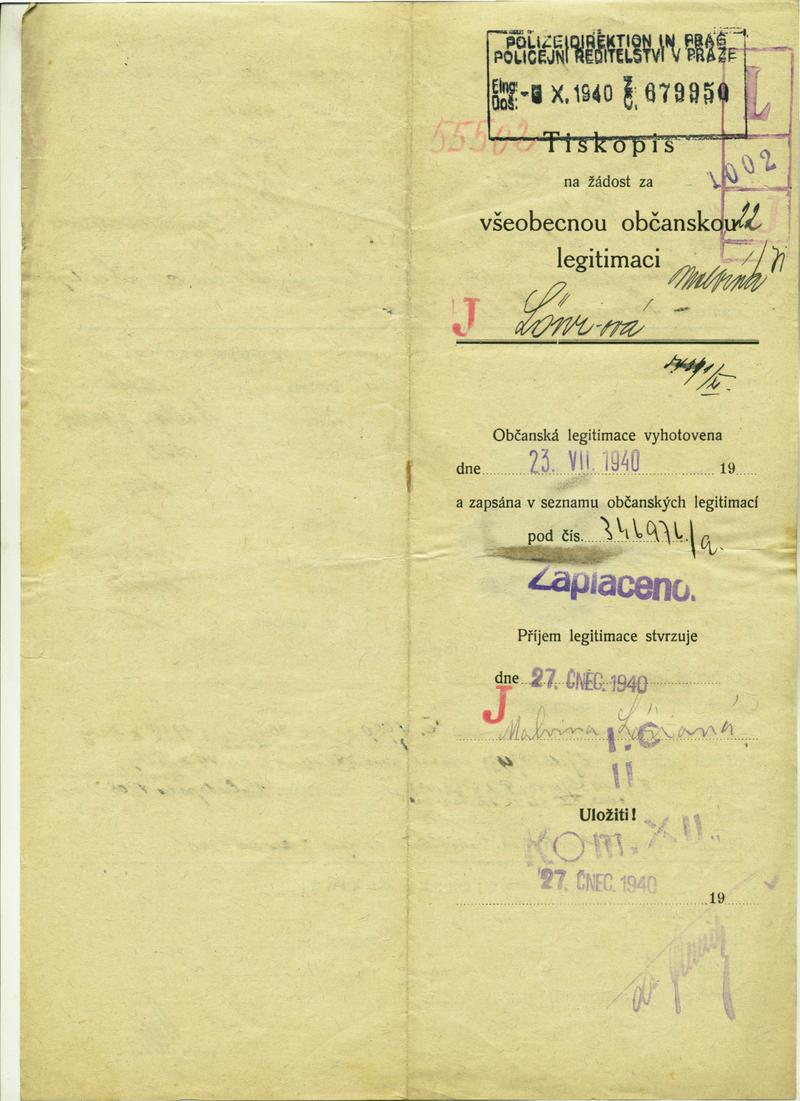 POLIZEIDIREKTION IN PRAG
POLICEJNÍ ŘEDITELSTVÍ V PRAZE
Eing:
Doš:
X. 1940 Z. Č. 679950
L
55502
Tiskopis
1002
na žádost za
všeobecnou občanskou
22
J
legitimaci
Malvina
J
Löwi-ová
Občanská legitimace vyhotovena
dne 23. VII. 1940 19
a zapsána v seznamu občanských legitimací
pod čís. 346974/a.
Zaplaceno.
Příjem legitimace stvrzuje
dne 27. ČNEC. 1940
J
Malvina
I. C
II
Uložiti!
KOM. XII.
27. ČNEC. 1940
19